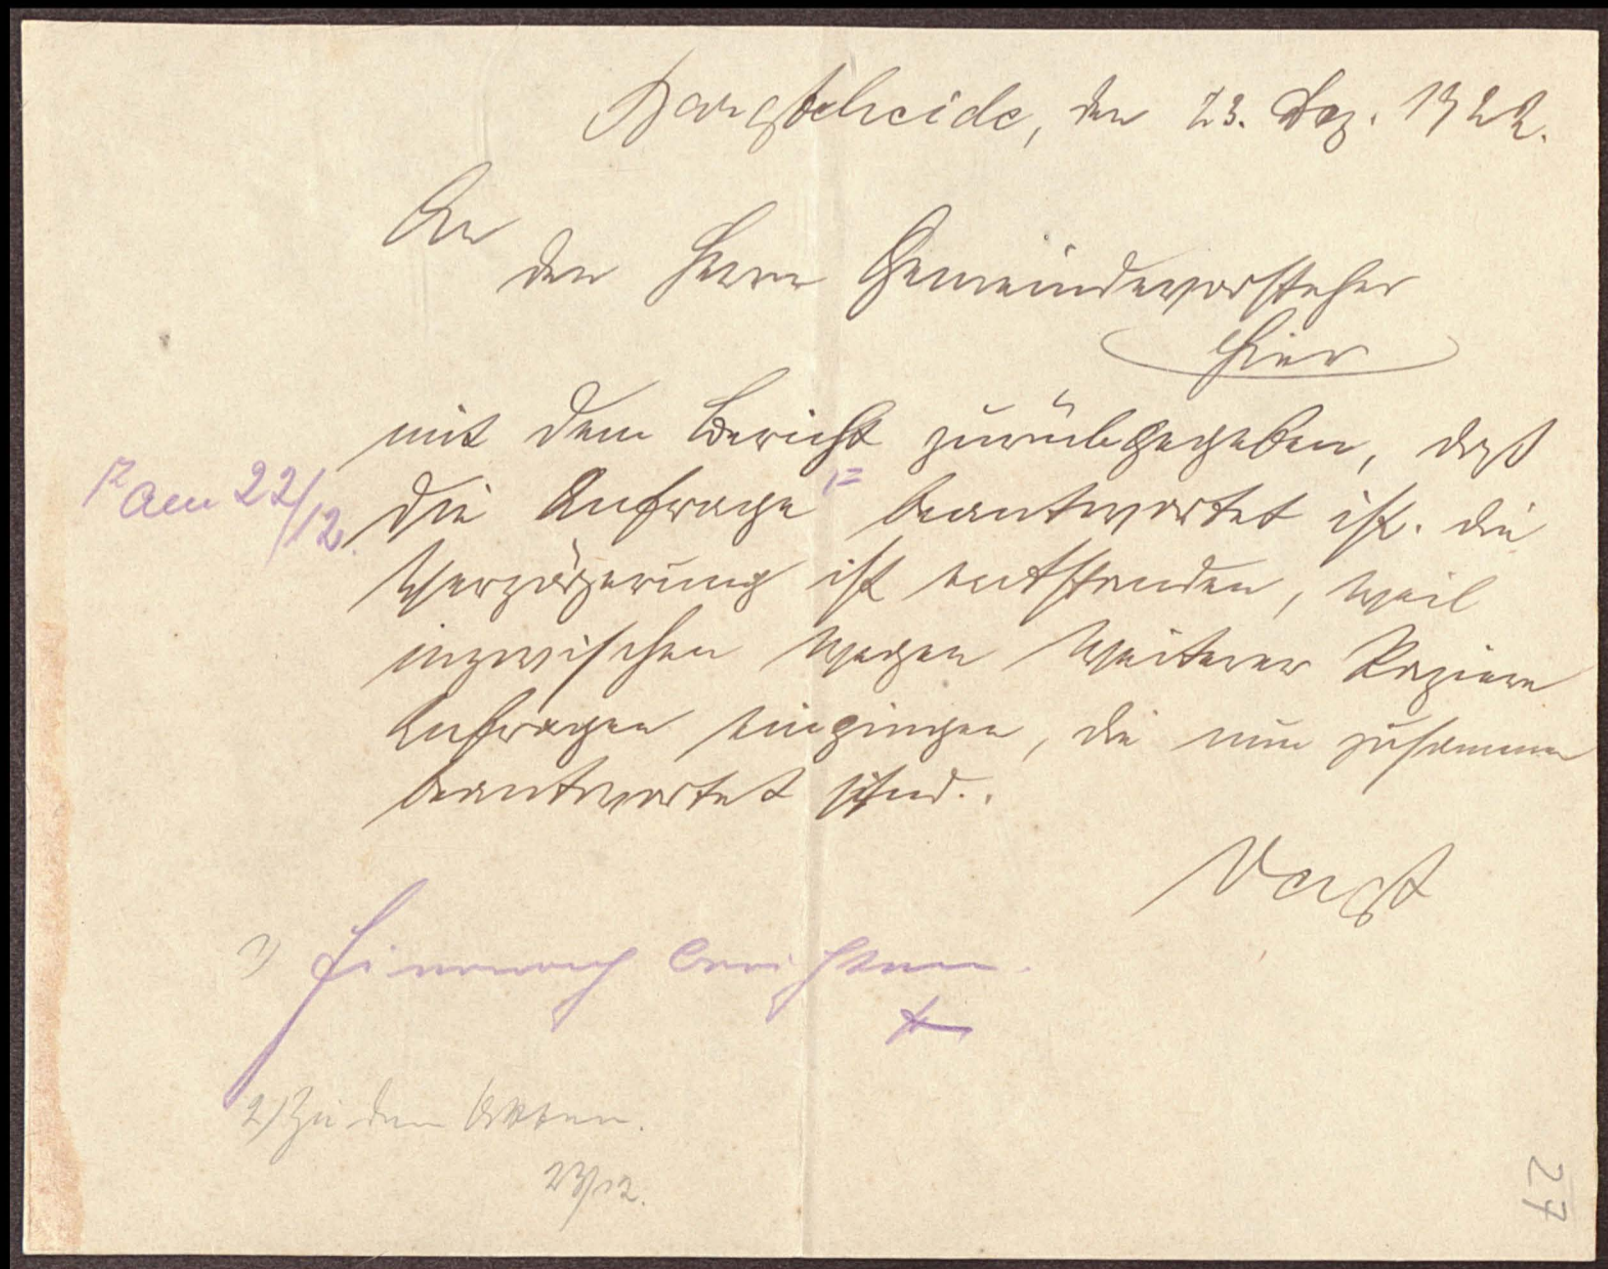 Bargteheide, den 23. Dez. 1922.
An
den Herrn Gemeindevorsteher
Hier
mit dem Bericht zurückgegeben, daß
am 22/12.
die Anfrage beantwortet ist. Die
Verzögerung ist entstanden, weil
inzwischen wegen weiterer
Anfragen eingingen, die nun zusammen
beantwortet sind.
Voigt
1) Hiernach berichten.
2) Zu den Akten.
23/12.
27